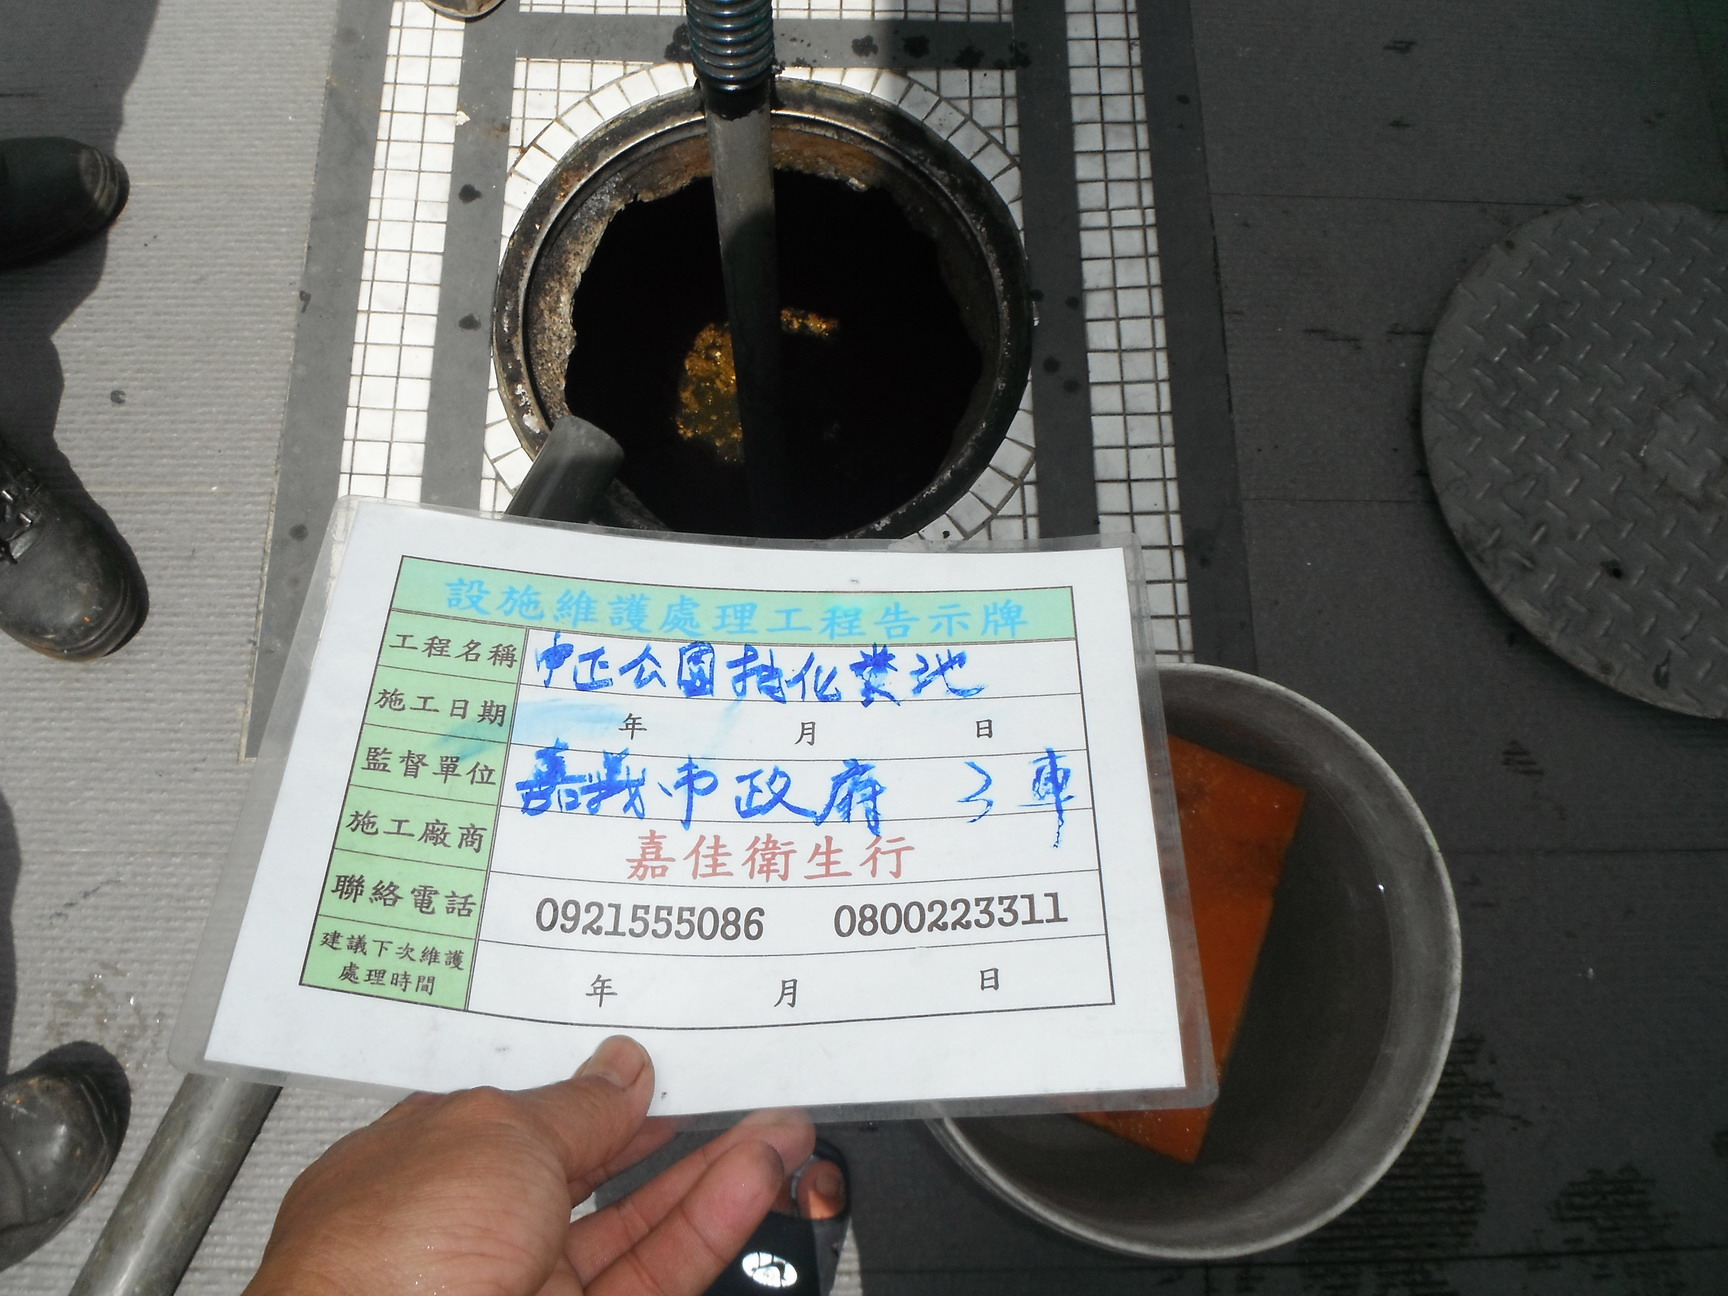 設施維護處理工程告示牌
工程名稱 中正公園抽化糞池
施工日期 年 月 日
監督單位 嘉義市政府 3車
施工廠商 嘉佳衛生行
聯絡電話 0921555086 0800223311
建議下次維護
處理時間 年 月 日